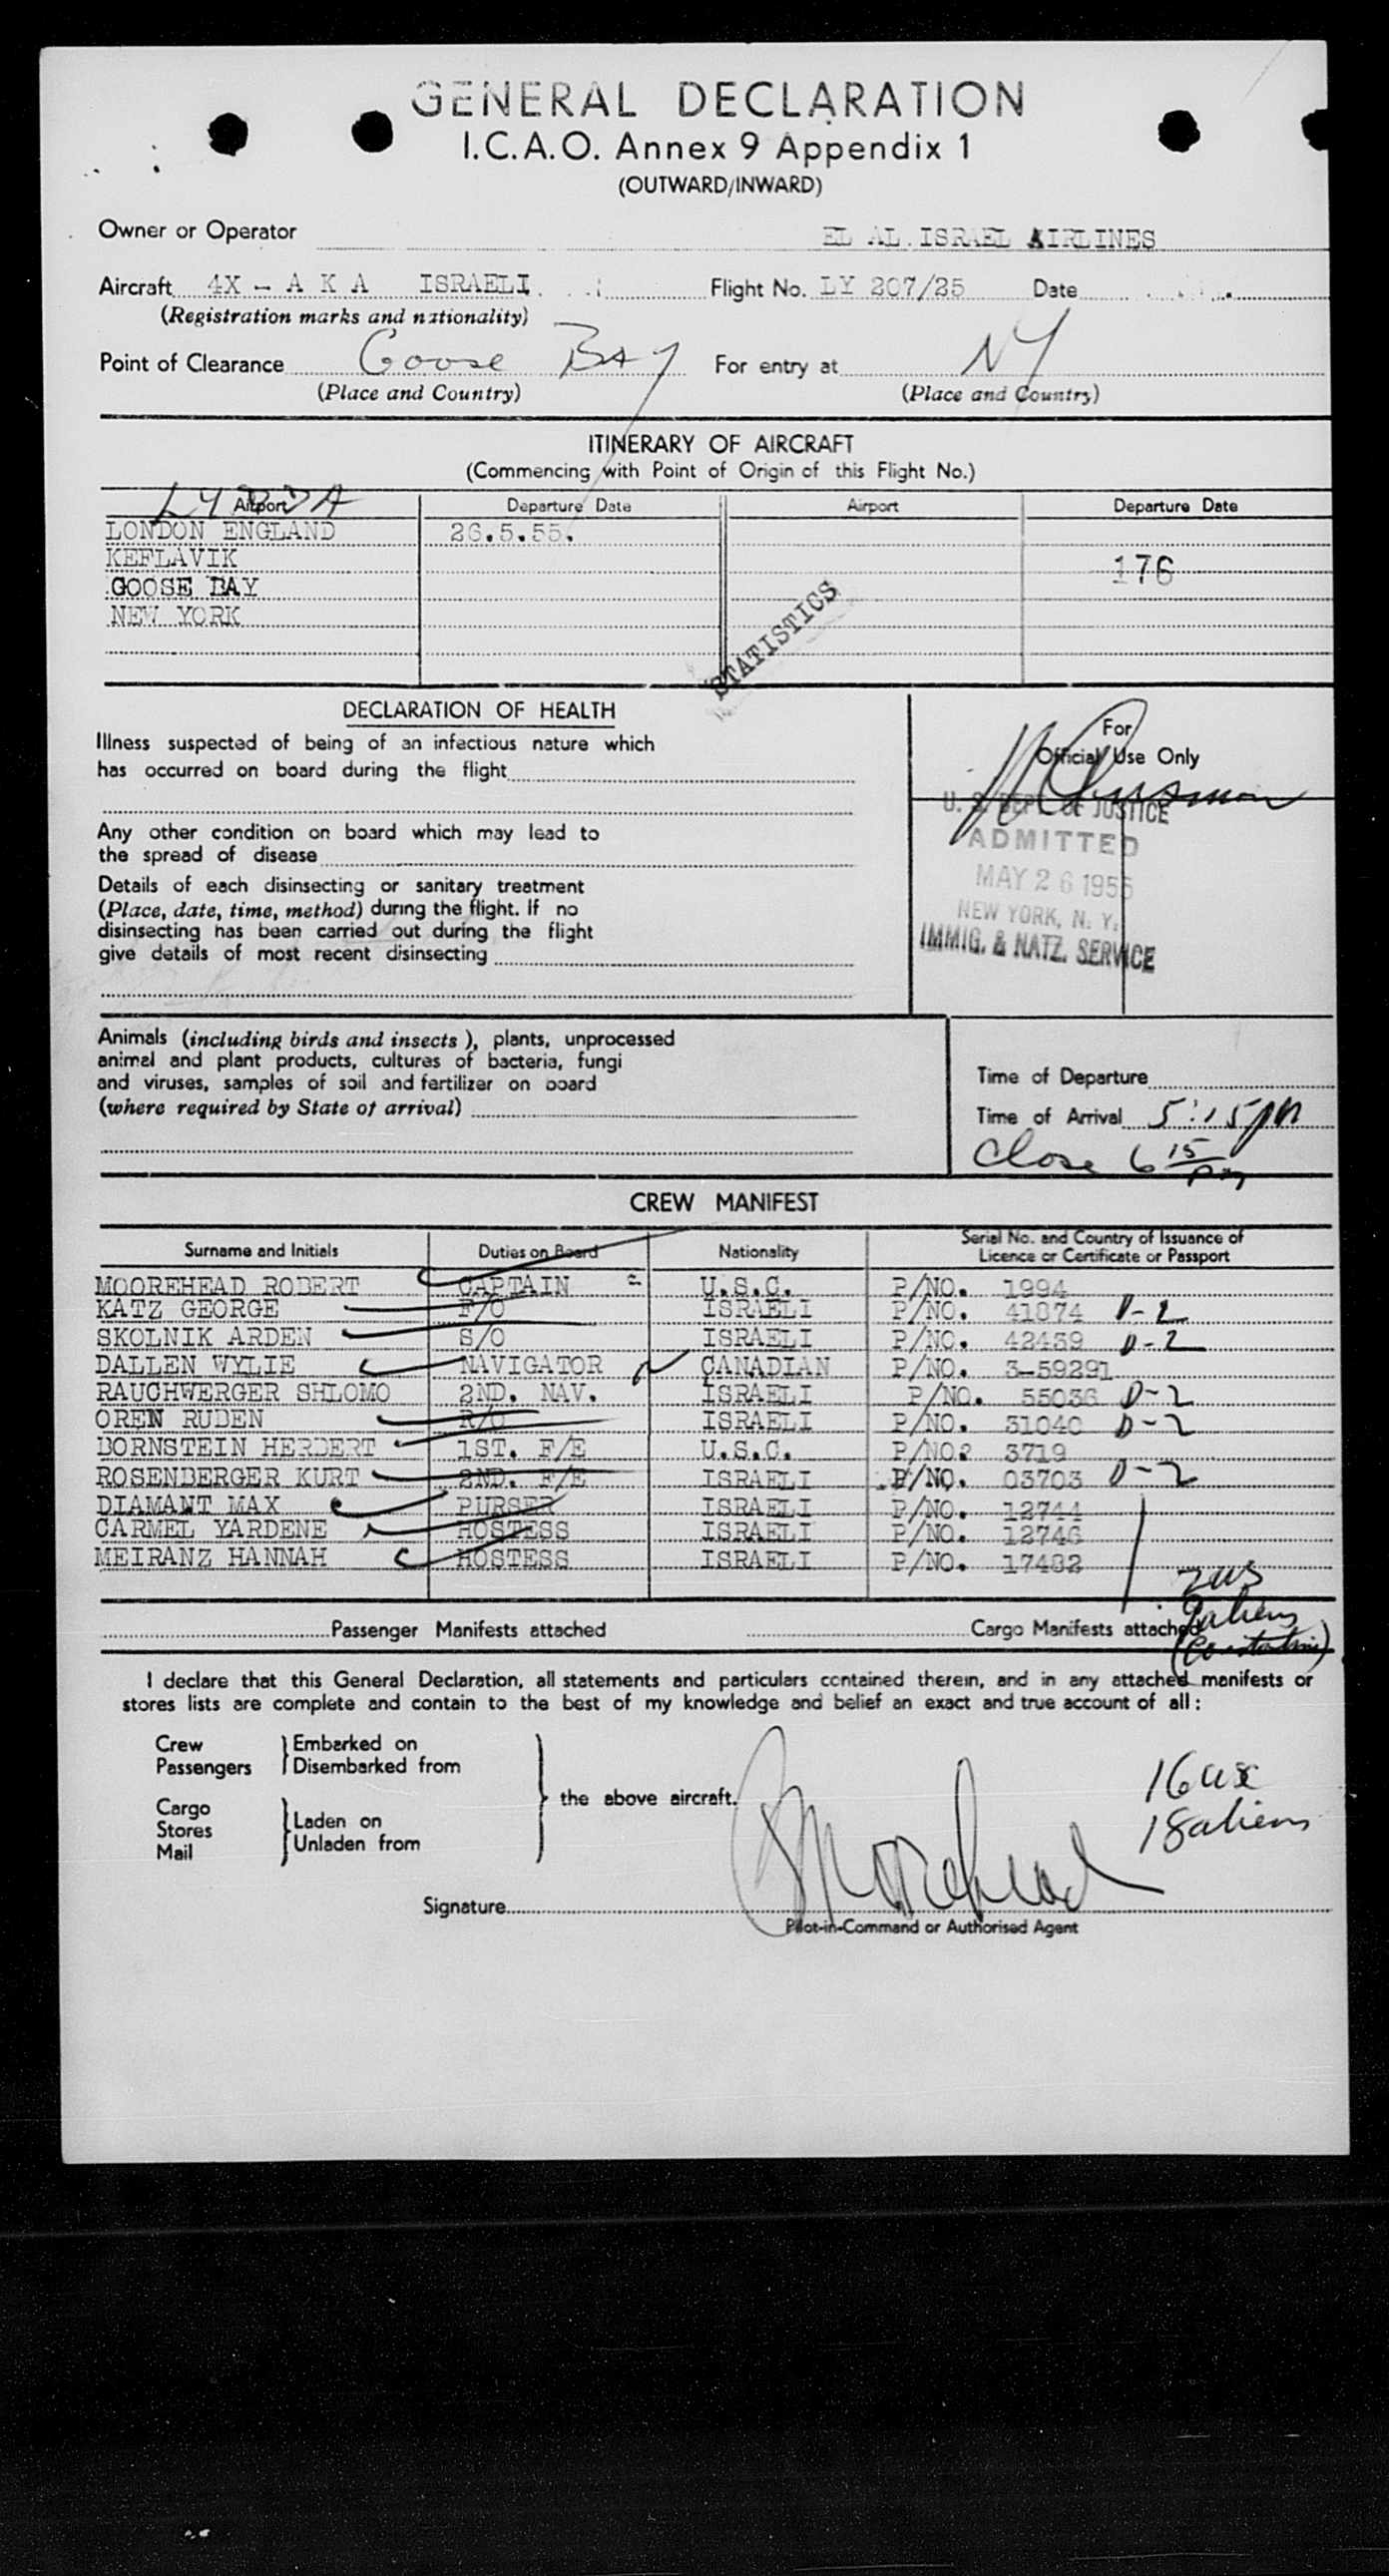 GENERAL DECLARATION
I.C.A.O. Annex 9 Appendix 1
(OUTWARD/INWARD)
Owner or Operator EL AL ISRAEL AIRLINES
Aircraft 4X - A K A ISRAELI. Flight No. LY 207/25 Date
(Registration marks and nationality)
Point of Clearance Goose BAY For entry at NY
(Place and Country) (Place and Country)
ITINERARY OF AIRCRAFT
(Commencing with Point of Origin of this Flight No.)
LYDDA
Airport Departure Date Airport Departure Date
LONDON ENGLAND 26.5.55.
KEFLAVIK 176
GOOSE BAY
NEW YORK
STATISTICS
DECLARATION OF HEALTH
For
Official Use Only
Illness suspected of being of an infectious nature which
has occurred on board during the flight
U. S. DEPT. OF JUSTICE
ADMITTED
MAY 26 1955
NEW YORK, N. Y.
IMMIG. & NATZ. SERVICE
Any other condition on board which may lead to
the spread of disease
Details of each disinsecting or sanitary treatment
(Place, date, time, method) during the flight. If no
disinsecting has been carried out during the flight
give details of most recent disinsecting
Animals (including birds and insects), plants, unprocessed
animal and plant products, cultures of bacteria, fungi
and viruses, samples of soil and fertilizer on board
(where required by State of arrival)
Time of Departure
Time of Arrival 5:15 pm
Close 6 15 pm
CREW MANIFEST
Surname and Initials Duties on Board Nationality Serial No. and Country of Issuance of Licence or Certificate or Passport
MOOREHEAD ROBERT CAPTAIN U.S.C. P/NO. 1994
KATZ GEORGE F/O ISRAELI P/NO. 41874 D-2
SKOLNIK ARDEN S/O ISRAELI P/NO. 42459 D-2
DALLEN WYLIE NAVIGATOR CANADIAN P/NO. 3-59291
RAUCHWERGER SHLOMO 2ND. NAV. ISRAELI P/NO. 55036 D-2
OREN RUBEN R/O ISRAELI P/NO. 31040 D-2
BORNSTEIN HERBERT 1ST. F/E U.S.C. P/NO? 3719
ROSENBERGER KURT 2ND. F/E ISRAELI P/NO. 03703 D-2
DIAMANT MAX PURSER ISRAELI P/NO. 12744
CARMEL YARDENE HOSTESS ISRAELI P/NO. 12746
MEIRANZ HANNAH HOSTESS ISRAELI P/NO. 17482
2 us
9 aliens
Passenger Manifests attached Cargo Manifests attached
I declare that this General Declaration, all statements and particulars contained therein, and in any attached manifests or
stores lists are complete and contain to the best of my knowledge and belief an exact and true account of all :
Crew Embarked on
Passengers Disembarked from
the above aircraft.
Cargo
Stores Laden on
Mail Unladen from
16 usc
18 aliens
Signature R Moorehead
Pilot-in-Command or Authorised Agent